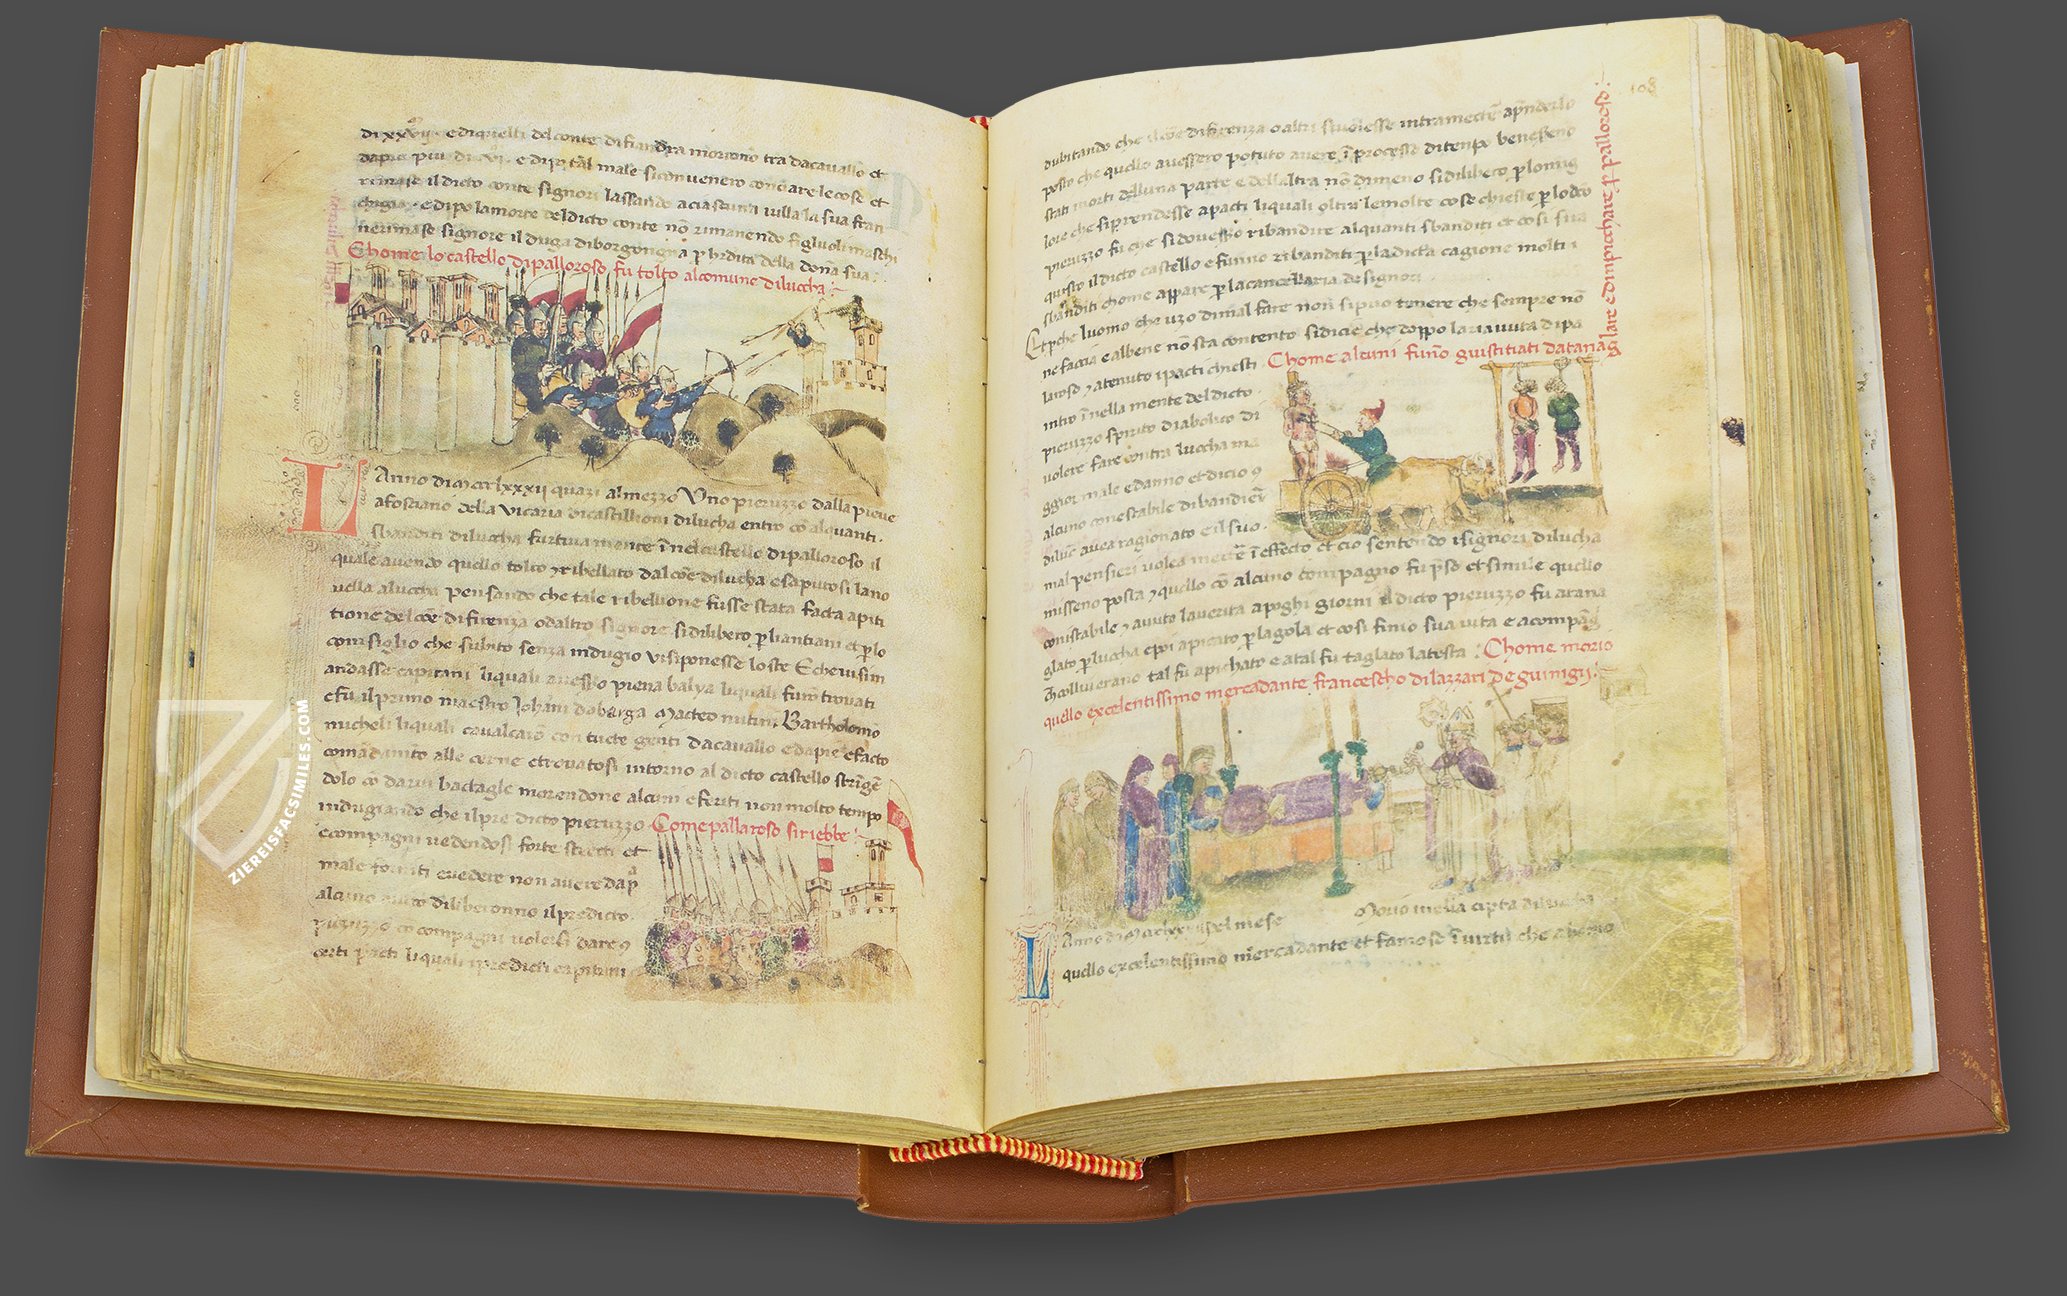 di xxviii e di quelli del conte di fiandra morirono tra da cavallo et
da pie piu di e di tal male si convenero conciare le cose et
rimase il dicto conte signori lassando a ciascuna villa la sua fran
chigia e dipo la morte del dicto conte nō rimanendo figluoli maschi
ne rimase signore il duga di borgongna p herdita della dona sua
Chome lo castello di palloroso fu tolto al comune di luccha
L Anno di mccclxxxii quazi al mezzo Uno pieruzzo dalla pieve
a fosciano della vicaria di castillioni di lucha entro cō alquanti
sbanditi di luccha furtivamente ī nel castello di palloroso il
quale avendo quello tolto ribellato dal coē di lucha e saputosi la no
vella a luccha pensando che tale ribellione fusse stata facta a piti
tione del coē di firenza o daltro signore si dilibero p li antiani et p lo
consiglio che subito senza indugio vi si ponesse loste E chevi si m
andasse capitani li quali avesseo piena balya li quali funno trovati
e fu il primo maestro Johāni da barga Macteo nutini Bartholomo
micheli li quali cavalcaro con tucte genti da cavallo e da pie e facto
comādamēto alle cerne e trovatosi intorno al dicto castello strīgē
dolo cō darvi bactagle morendone alcuni e feriti non molto tempo
indugiando che il pre dicto pieruzzo Come pallaroso si riebbe
e compagni vedendosi forte strecti et
male forniti e vedere non avere da p
alcuno aiuto diliberonno il predicto
pieruzzo co compagni volersi dare
certi pacti li quali i predicti capitani
108
dubitando che il coē di firenza o altri si volesse intramectē a prīderlo
posto che quello avessero potuto avere ī processo di tempo benesseno
stati morti delluna parte e dellaltra nō di meno si dilibero p lo mig
lore che si prendesse a pacti li quali oltra le molte cose chieste p lo dco
pieruzzo fu che si dovesseo ribandire alquanti sbanditi et cosi fu a
questo il dicto castello e funno ribanditi p la dicta cagione molti
sbanditi chome appare p la cancellaria de signori
Et pche luomo che uzo di mal fare non si puo tenere che sempre nō
ne faccia e al bene nō sta contento si dicie che doppo la riavuta di pa
laroso atenuto i pacti chiesti Chome alcuni funō guistitiati da tanag
lare ed impicchare p palloroso
intro ī nella mente del dicto
pieruzzo spirito diabolico di
volere fare contra luccha ma
ggior male e danno et dicio
alcuno conestabile di bandiere
di luc avea ragionato e il suo
mal pensieri volea mectē ī effecto et cio sentendo i signori di lucha
misseno posta quello cō alcuno compagno fu pso et simile quello
conistabile avuto la verita a poghi giorni il dicto pieruzzo fu atana
glato p luccha e poi apicato p la gola et cosi finio sua vita e a compāg
che collui erano tal fu apichato e a tal fu taglato la testa Chome morio
quello excelentissimo mercadante francescho di lazzari de guinigii
L Anno di del mese Morio in ella cipta di luccha
quello excelentissimo mercadante et famoso ī virtu che
ZIEREISFACSIMILES.COM